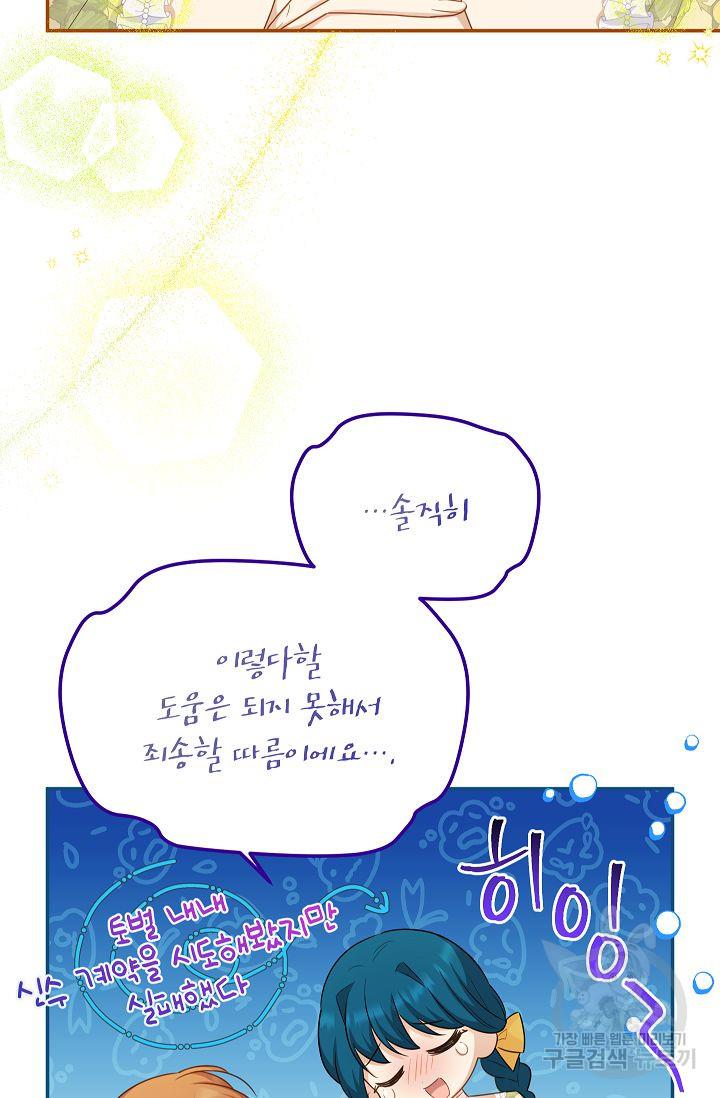 …솔직히
이렇다할
도움은 되지 못해서
죄송할 따름이에요….
히잉
토벌 내내
신수 계약을 시도해봤지만
실패했다
가장 빠른 웹툰 미리보기
구글검색 뉴토끼